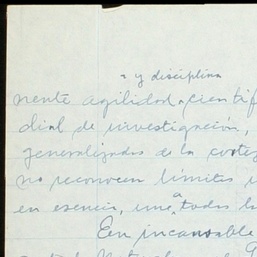 y disciplina
mente agilidad cientif
dial de investigación,
generalizados de la cortez
no reconocen límites
en esencia, una a todas la
Een incansable